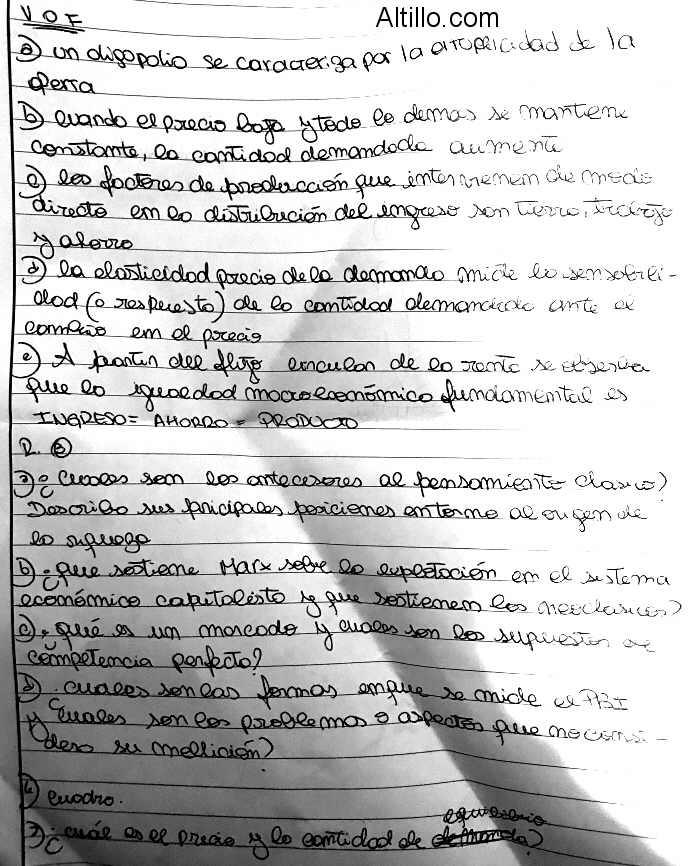 Altillo.com
V O F
a) un oligopolio se caracteriza por la atomicidad de la
oferta
b) cuando el precio baja y todo lo demas se mantiene
constante, la cantidad demandada aumenta
c) los factores de producción que intervienen de modo
directo en la distribución del ingreso son tierra, trabajo
y ahorro
d) la elasticidad precio de la demanda mide la sensibili-
dad (o respuesta) de la cantidad demandada ante el
cambio en el precio
e) A partir del flujo circular de la renta se observa
que la igualdad macroeconómica fundamental es
INGRESO = AHORRO = PRODUCTO
2.
a) ¿Cuales son los antecesores al pensamiento clasico?
Describa sus principales posiciones entorno al origen de
la riqueza
b) ¿que sostiene Marx sobre la explotación en el sistema
económico capitalista y que sostienen los neoclasicos?
c) ¿qué es un mercado y cuales son los supuestos de
competencia perfecta?
d) ¿cuales son las formas en que se mide el PBI
y cuales son los problemas o aspectos que no consi-
dera su medición?
cuadro.
¿cuál es el precio y la cantidad de equilibrio?